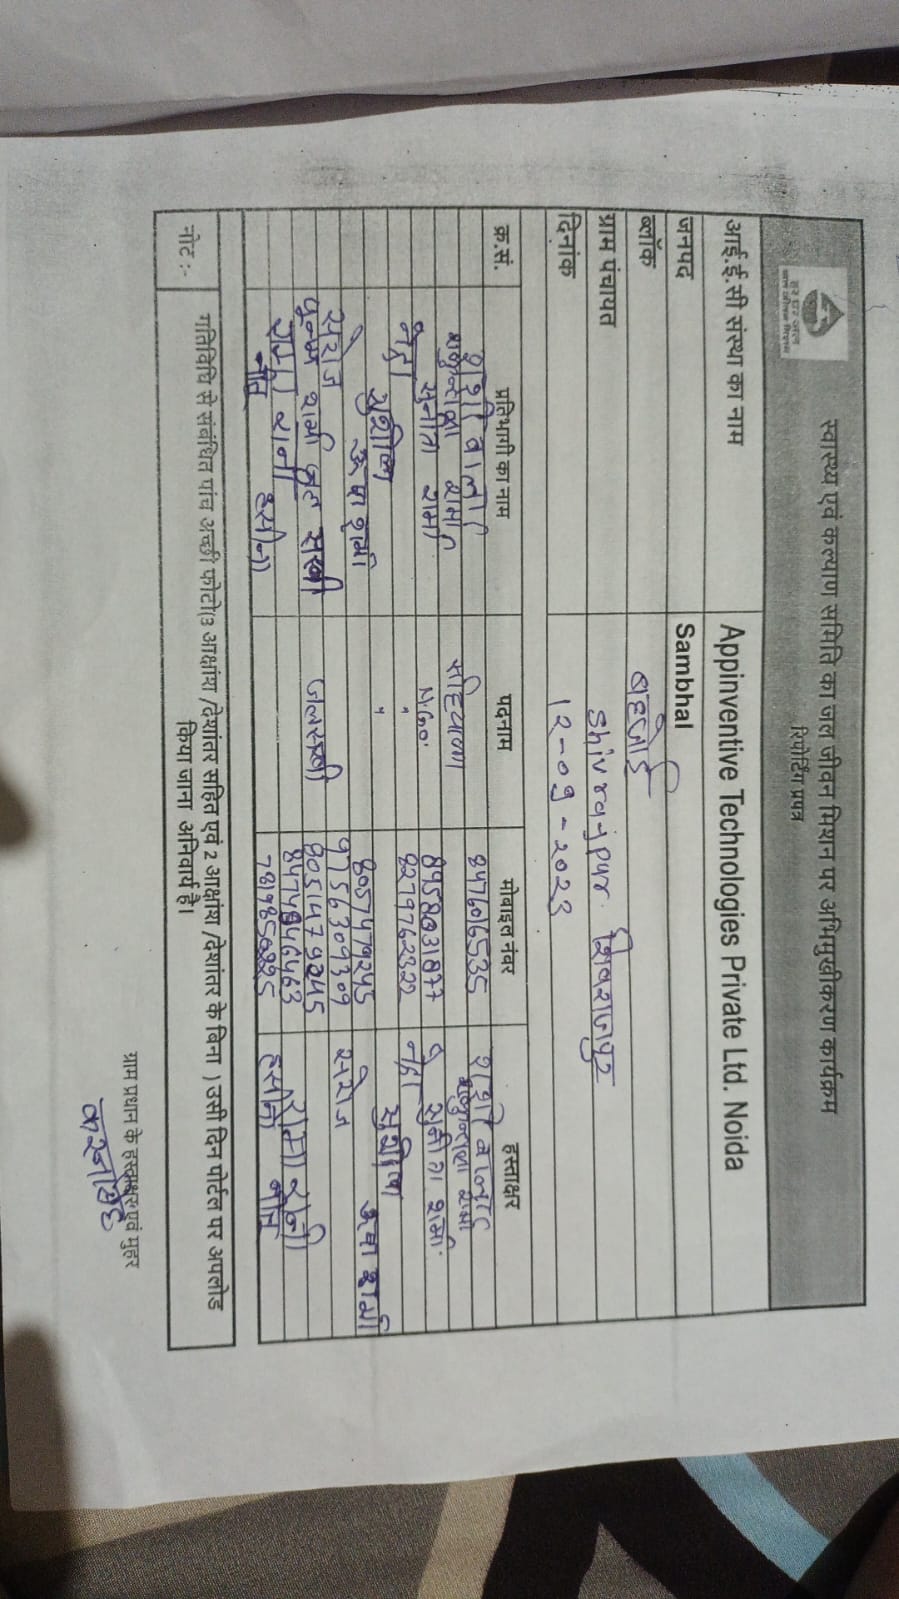 हर घर जल
जल जीवन मिशन
स्वास्थ्य एवं कल्याण समिति का जल जीवन मिशन पर अभिमुखीकरण कार्यक्रम
रिपोर्टिंग प्रपत्र
आई.ई.सी संस्था का नाम Appinventive Technologies Private Ltd. Noida
जनपद Sambhal
ब्लॉक बहजोई
ग्राम पंचायत Shivrajpur शिवराजपुर
दिनांक 12-09-2023
क्र.सं. प्रतिभागी का नाम पदनाम मोबाइल नंबर हस्ताक्षर
शशी
शकुन्तला शर्मा
सुनीता शर्मा N.G.O. सुनीता शर्मा
नेहा " 8279762322 नेहा
सुशीला " सुशीला
ऊषा शर्मा 8057479245 ऊषा शर्मा
सरोज 9756309309 सरोज
पूनम शर्मा जल सखी जलसखी
रानी
हसीना हसीना
नोट :- गतिविधि से संबंधित पांच अच्छी फोटो(3 आक्षांश /देशांतर सहित एवं 2 आक्षांश /देशांतर के बिना ) उसी दिन पोर्टल पर अपलोड
किया जाना अनिवार्य है।
ग्राम प्रधान के हस्ताक्षर एवं मुहर